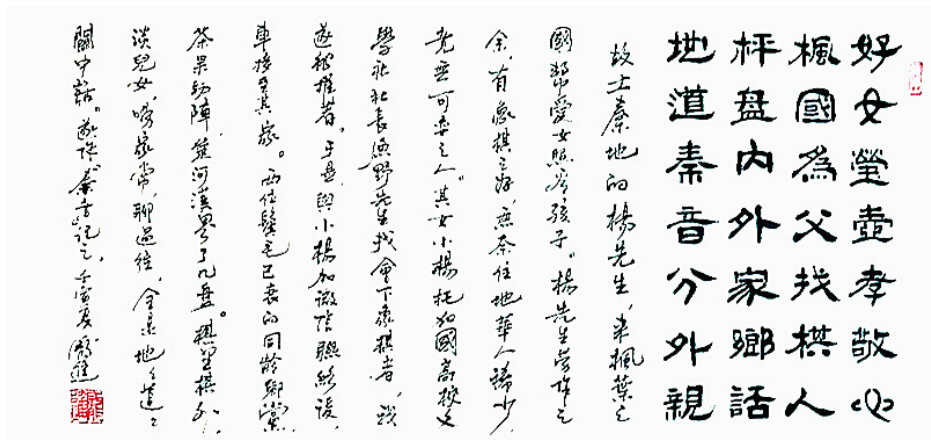 好女瑩壺孝敬心
楓國為父找棋人
枰盘内外家鄉話
地道秦音分外親
故土秦地的楊先生,来楓葉之
國幫愛女照看孩子。楊先生勞作之
余,有象棋之好,無奈住地華人稀少,
竟無可弈之人。其女小楊托加國高校文
學社社長漁野先生找會下象棋者,我
遂被推荐。于是,與小楊加微信聯絡後,
車接至其家。两位鬓毛已衰的同龄鄉党,
茶果助陣,楚河漢界了几盘。棋里棋外,
淡兒女,嘮家常,聊過往,全是地々道々
關中話。遂作秦音記之。壬寅夏 進